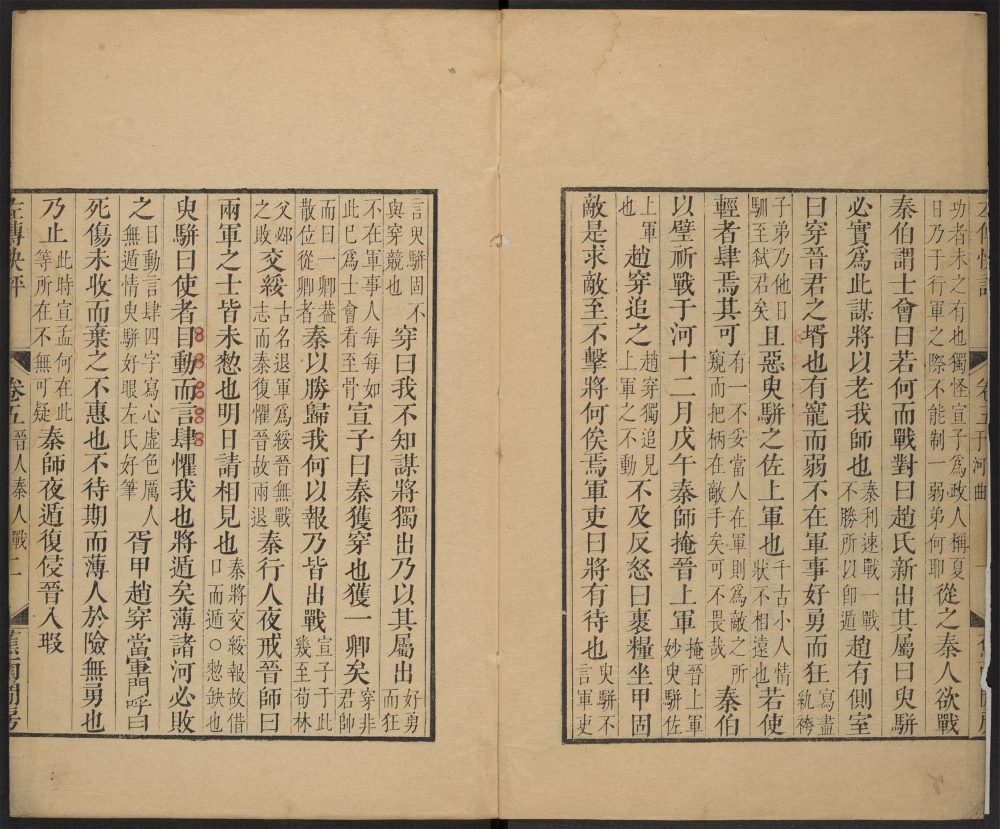 功者未之有也獨怪宣子為政人稱夏
日乃于行軍之際不能制一弱弟何耶
從之秦人欲戰
秦伯謂士會曰若何而戰對曰趙氏新出其屬曰臾駢
必實為此謀將以老我師也
秦利速戰一戰
不勝所以卽遁
趙有側室
曰穿晉君之壻也有寵而弱不在軍事好勇而狂
寫盡
紈袴
子弟乃他日
馴至弒君矣
且惡臾駢之佐上軍也
千古小人情
狀不相遠也
若使
輕者肆焉其可
有一不妥當人在軍則為敵之所
窺而把柄在敵手矣可不畏哉
秦伯
以璧祈戰于河十二月戊午秦師掩晉上軍
掩晉上軍
妙臾駢佐
上軍
也
趙穿追之
趙穿獨追見
上軍之不動
不及反怒曰裹糧坐甲固
敵是求敵至不擊將何俟焉軍吏曰將有待也
臾駢不
言軍吏
言臾駢固不
與穿競也
穿曰我不知謀將獨出乃以其屬出
好勇
而狂
不在軍事人每每如
此已為士會看至骨
宣子曰秦獲穿也獲一卿矣
穿非
君帥
而曰一卿葢
散位從卿者
秦以勝歸我何以報乃皆出戰
宣子于此
幾至荀林
父邲
之敗
交綏
古名退軍為綏晉無戰
志而秦復懼晉故兩退
秦行人夜戒晉師曰
兩軍之士皆未憖也明日請相見也
秦將交綏報故借
口而遁○憖缺也
臾駢曰使者目動而言肆懼我也將遁矣薄諸河必敗
之
目動言肆四字寫心虛色厲人
無遁情臾駢好眼左氏好筆
胥甲趙穿當軍門呼曰
死傷未收而棄之不惠也不待期而薄人於險無勇也
乃止
此時宣孟何在此
等所在不無可疑
秦師夜遁復侵晉入瑕
左傳快評
卷五
晉人秦人戰
二
蕉南閒房